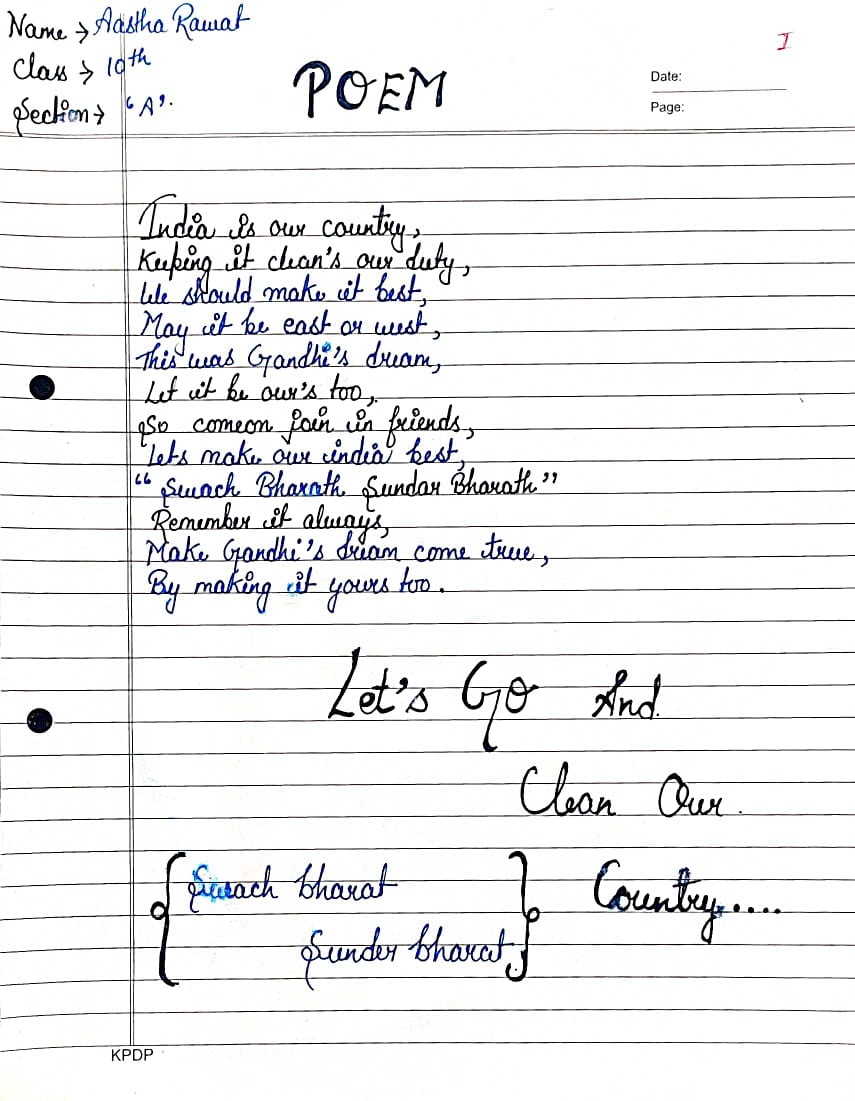 Name → Aastha Rawat
Class → 10th
Section → "A".
POEM
I
Date:
Page:
India is our country,
Keeping it clean's our duty,
We should make it best,
May it be east or west,
This was Gandhi's dream,
Let it be our's too,
So comeon join in friends,
Lets make our india best,
"Swach Bharath Sundar Bharath"
Remember it always,
Make Gandhi's dream come true,
By making it yours too.
Let's Go And
Clean Our
Country.....
{Swach bharat
Sunder bharat}
KPDP